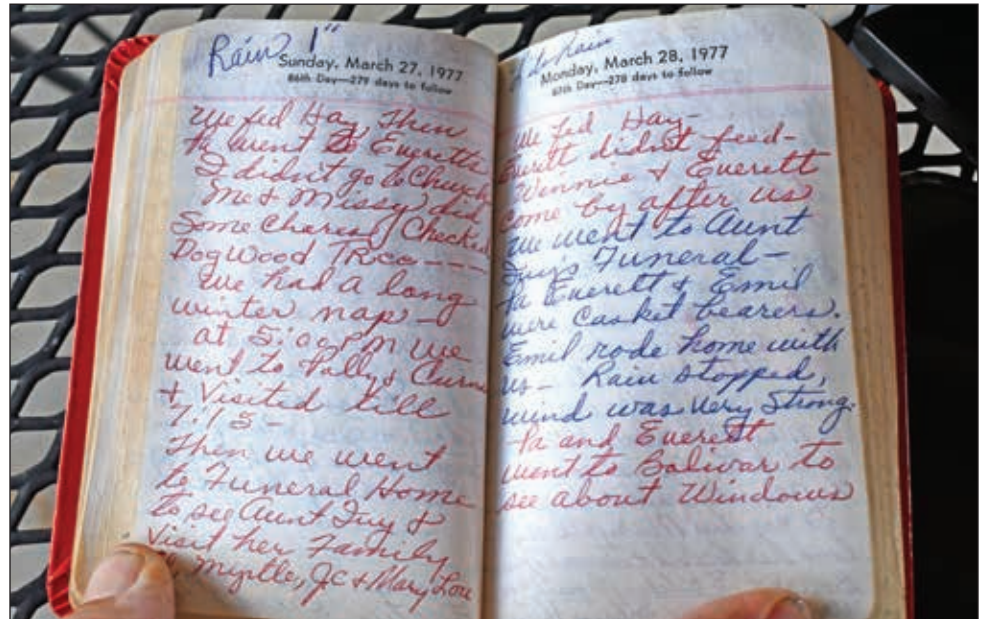 Rain 1"
Sunday, March 27, 1977
86th Day—279 days to follow
We fed Hay, Then
Pa went to Everetts
I didn't go to Church
Me & Missy did
Some Chores / Checked
DogWood Tree ----
We had a long
winter nap —
at 5:00 PM we
went to Polly &
& Visited till
7:15 -
Then we went
to Funeral Home
to see Aunt Ivy &
Visit her Family
Myrtle, JC & Mary Lou
Rain
Monday, March 28, 1977
87th Day—278 days to follow
We fed Hay-
Everett didn't feed-
Vennie & Everett
Come by after us
We went to Aunt
Ivy's Funeral —
Pa Everett & Emil
were Casket bearers.
Emil rode home with
us - Rain stopped,
wind was Very Strong.
Pa and Everett
went to Bolivar to
see about Windows